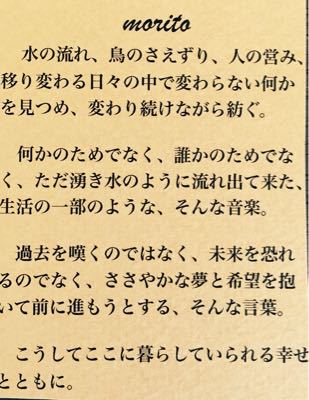 morito
水の流れ、鳥のさえずり、人の営み、
移り変わる日々の中で変わらない何か
を見つめ、変わり続けながら紡ぐ。
何かのためでなく、誰かのためでな
く、ただ湧き水のように流れ出て来た、
生活の一部のような、そんな音楽。
過去を嘆くのではなく、未来を恐れ
るのでなく、ささやかな夢と希望を抱
いて前に進もうとする、そんな言葉。
こうしてここに暮らしていられる幸せ
とともに。